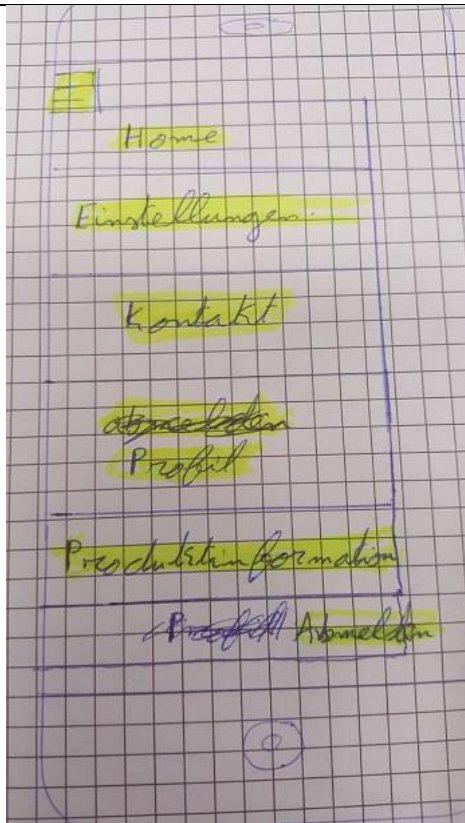 Home
Einstellungen.
Kontakt
Profil
Produktinformation
Abmelden